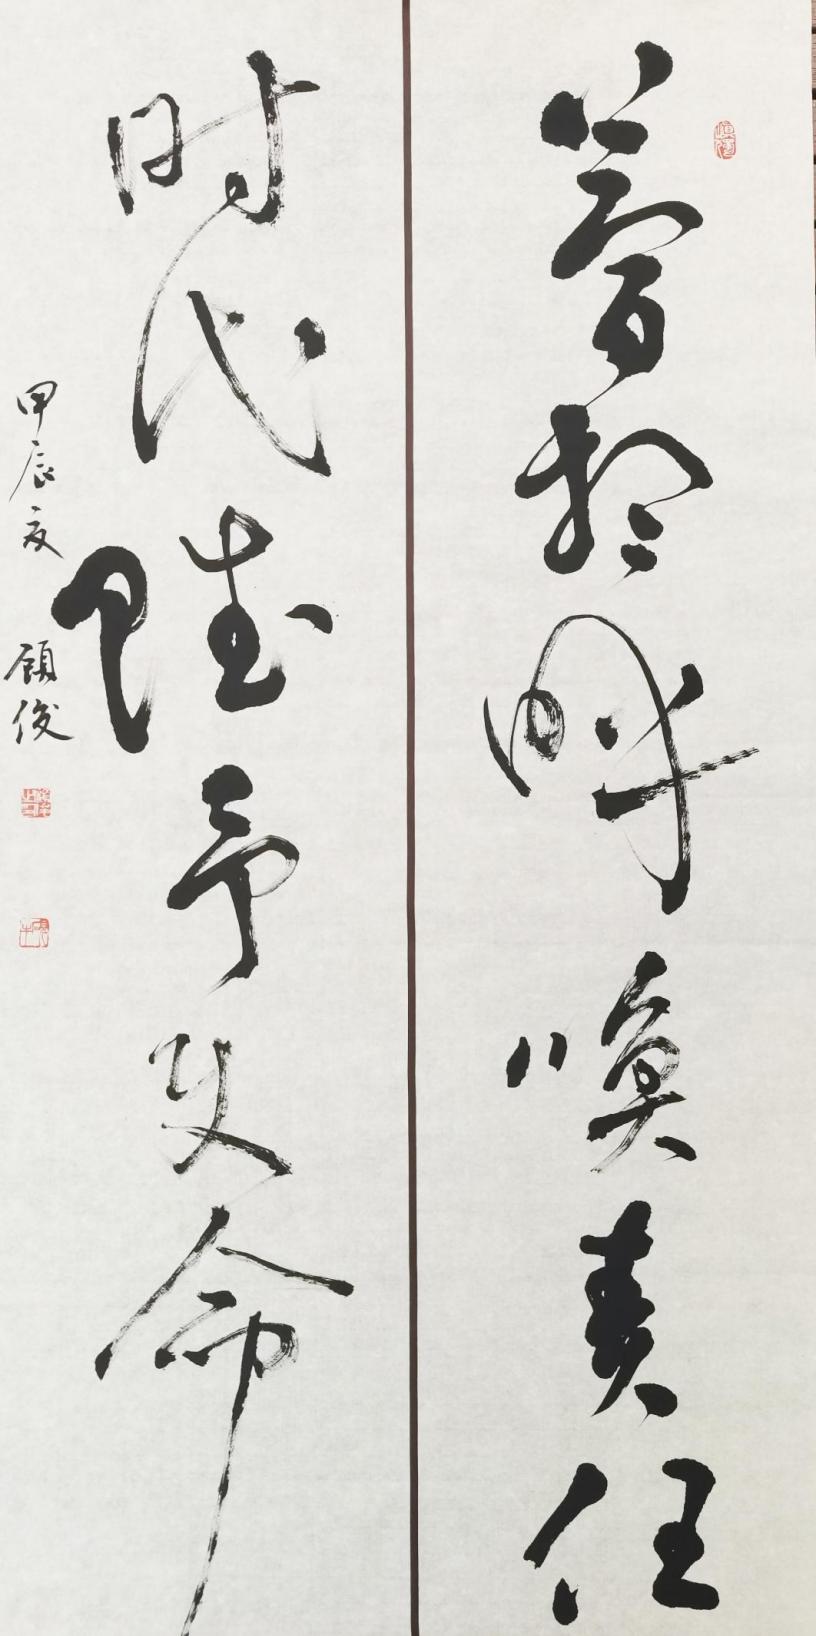 夢想呼唤责任
时代赋予使命
甲辰夏 顾俊